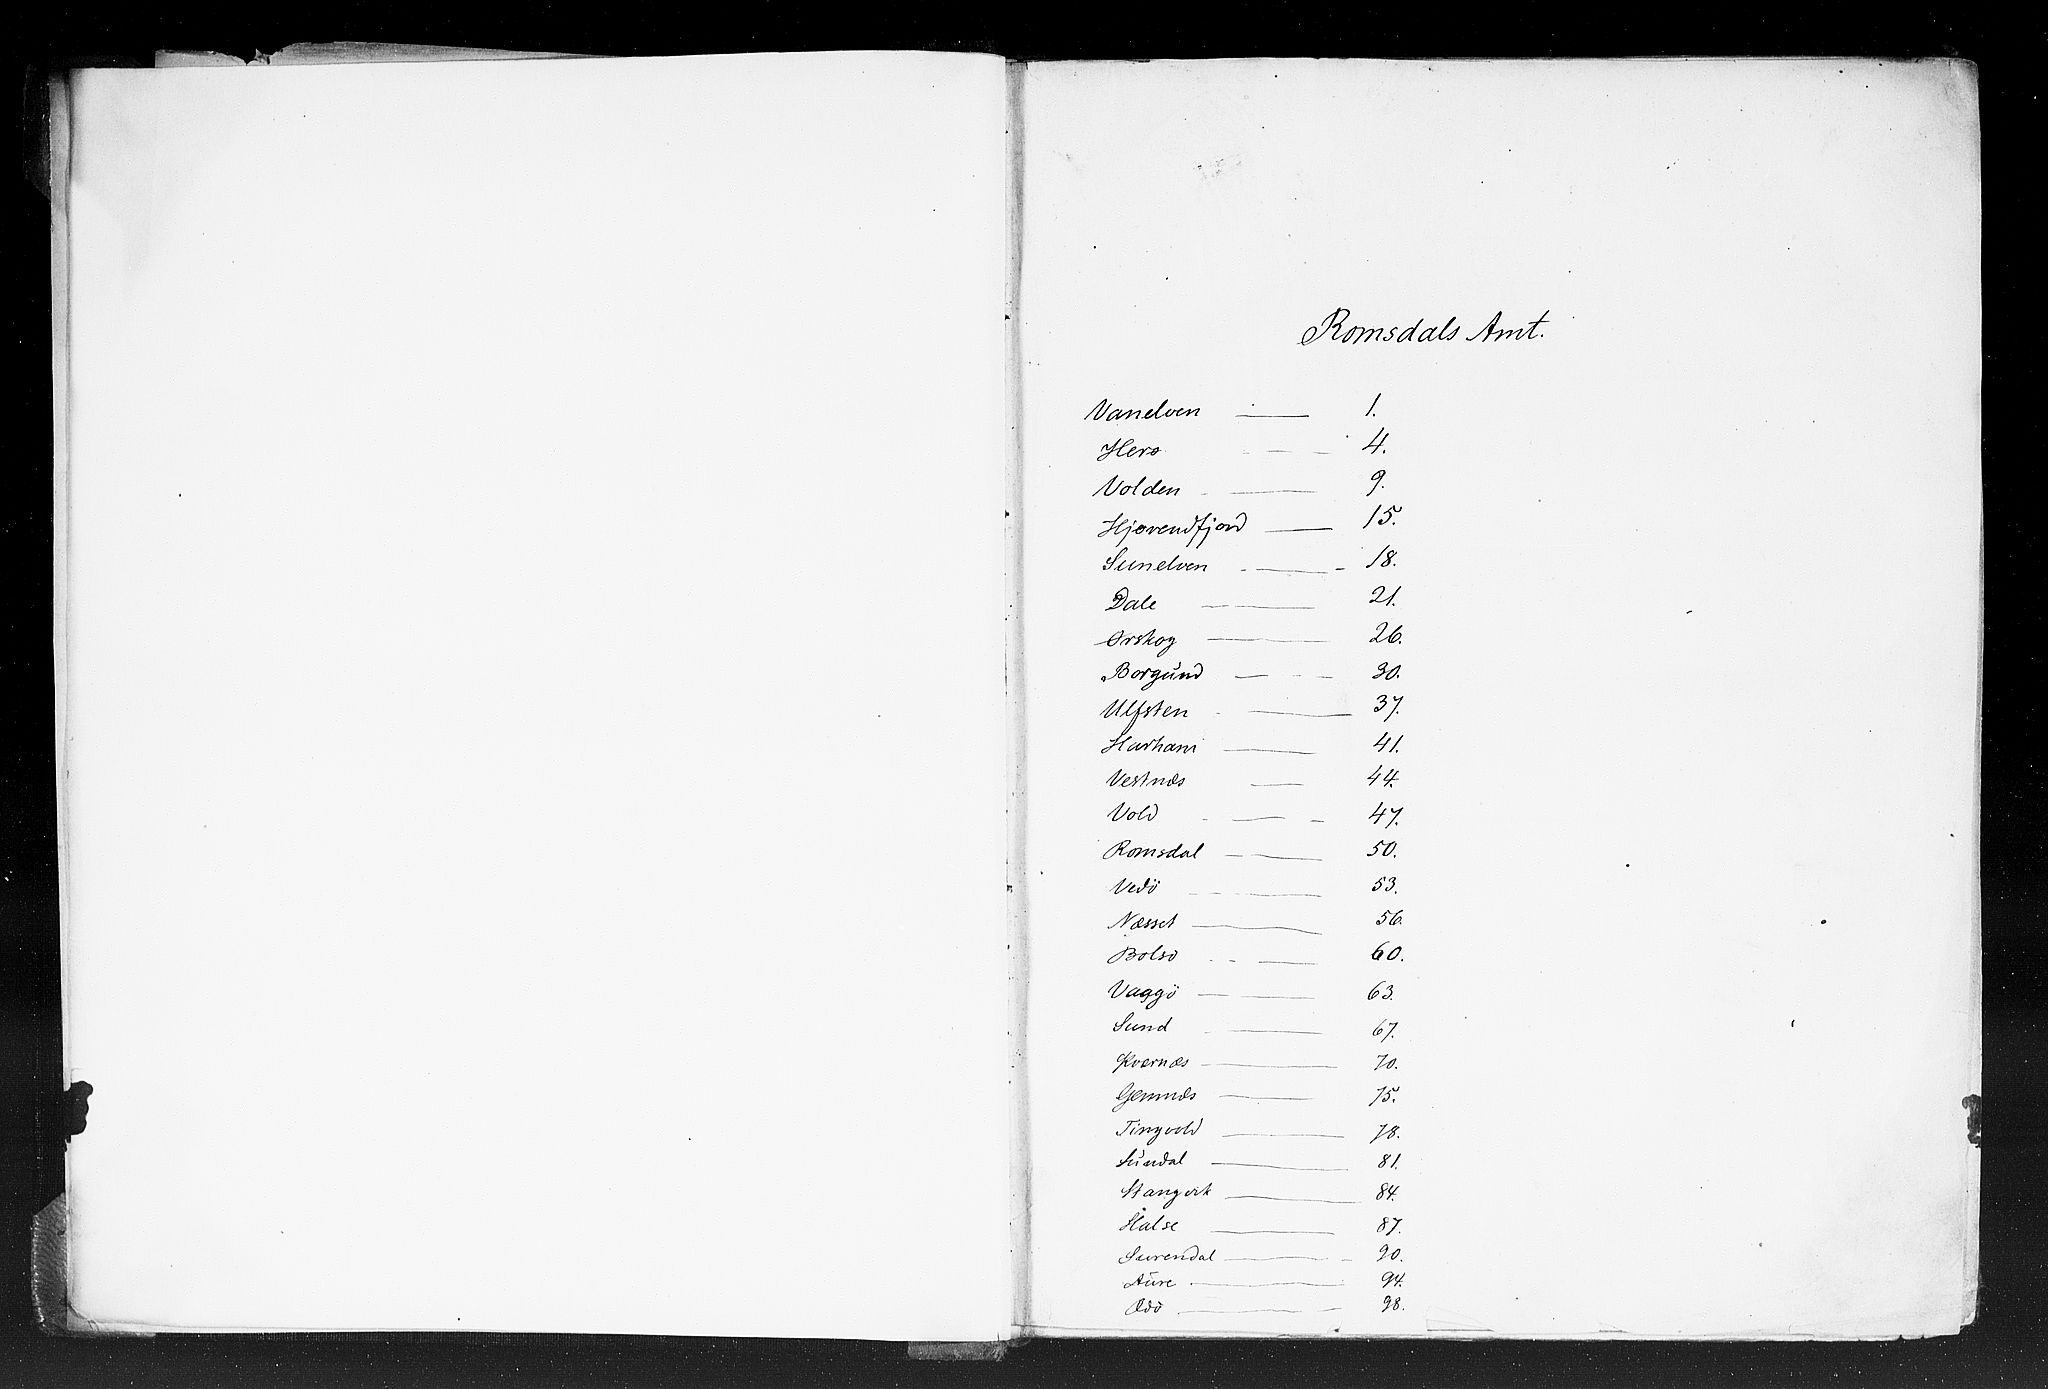 Romsdals Amt.
Vanelven — 1.
Herø - - - 4.
Volden - — 9.
Hjørendfjord — 15.
Sunelven - — - 18.
Dale — — 21.
Ørskog — 26.
Borgund — - - 30.
Ulfsten - — 37.
Harham — 41.
Vestnæs — 44.
Vold - — - 47.
Romsdal — — 50.
Vedö — 53.
Næsset — 56.
Bolsö - - — 60.
Vaggö — — 63.
Sund - — 67.
Kvernæs — 70.
Gemnæs — 75.
Tingvold — 78.
Sundal — 81.
Stangvik — 84.
Halse — 87.
Surendal — - 90.
Aure - — 94.
Edö — - 98.